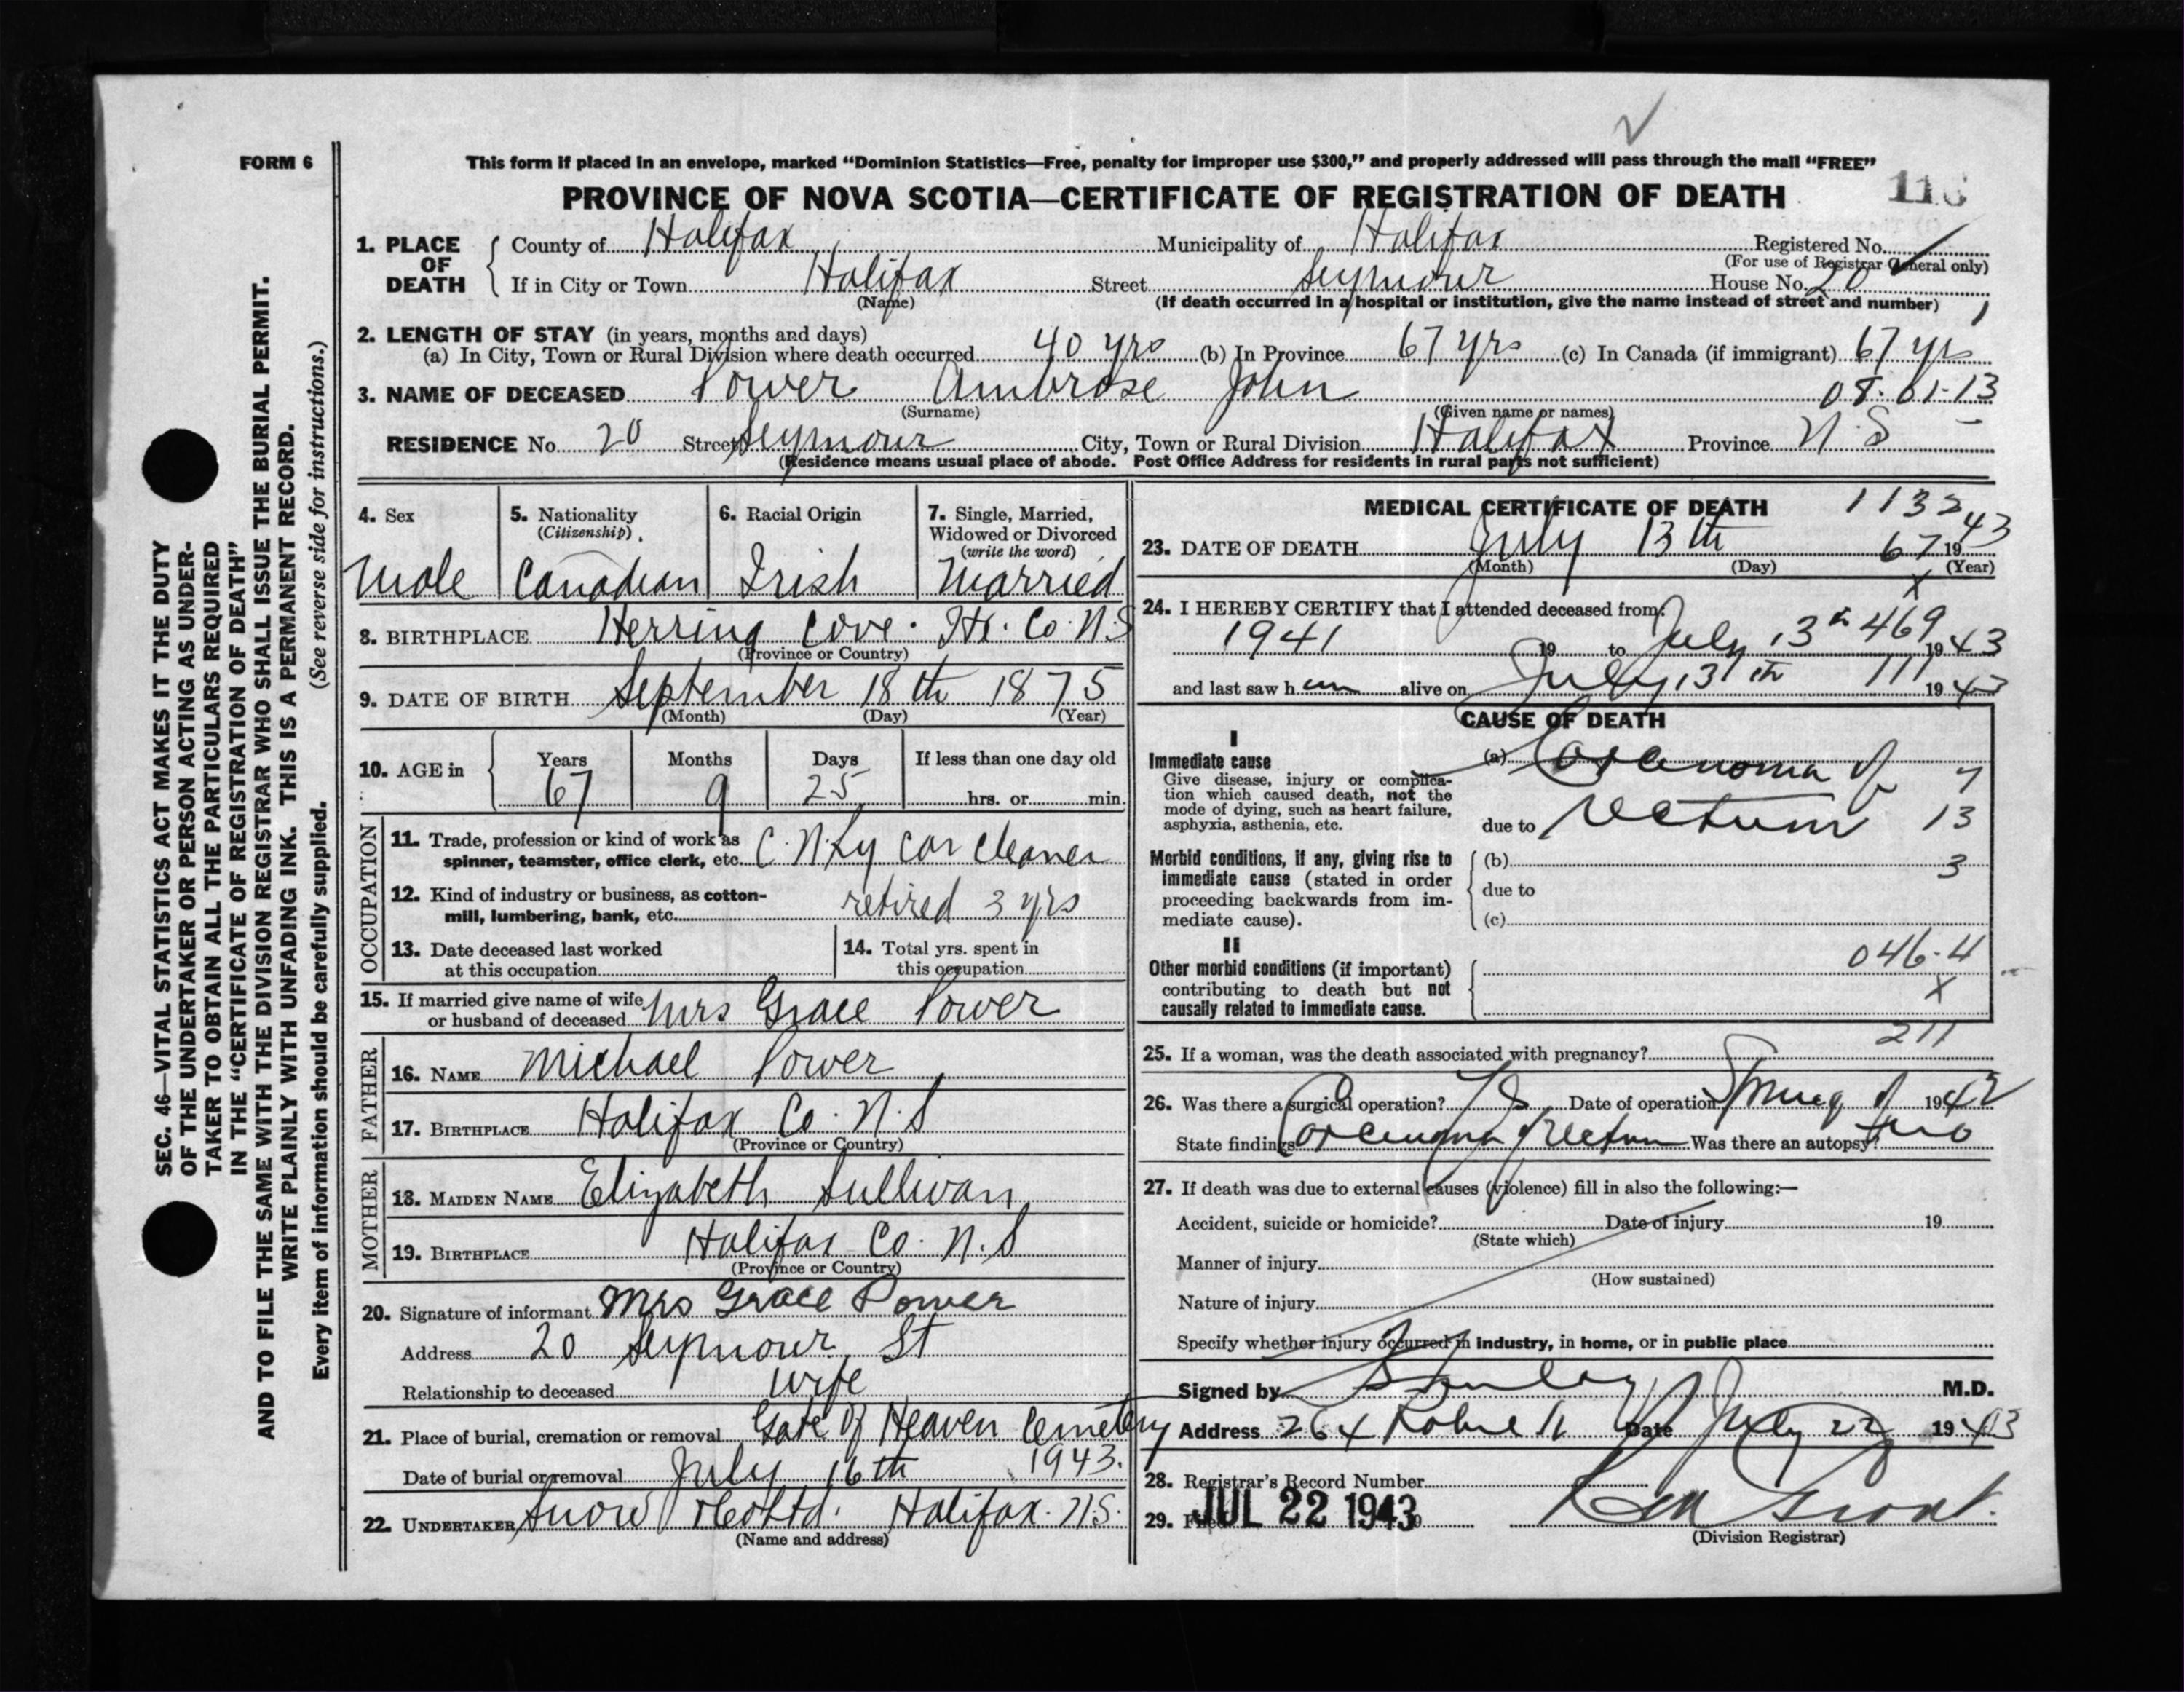 FORM 6
This form if placed in an envelope, marked “Dominion Statistics—Free, penalty for improper use $300,” and properly addressed will pass through the mail “FREE”
PROVINCE OF NOVA SCOTIA—CERTIFICATE OF REGISTRATION OF DEATH
1. PLACE OF DEATH
County of Halifax Municipality of Halifax Registered No.
(For use of Registrar General only)
If in City or Town Halifax Street Seymour House No. 20
(Name) (If death occurred in a hospital or institution, give the name instead of street and number)
2. LENGTH OF STAY (in years, months and days)
(a) In City, Town or Rural Division where death occurred 40 yrs (b) In Province 67 yrs (c) In Canada (if immigrant) 67 yrs
3. NAME OF DECEASED Power Ambrose John 08.01-13
(Surname) (Given name or names)
RESIDENCE No. 20 Street Seymour City, Town or Rural Division Halifax Province N.S
(Residence means usual place of abode. Post Office Address for residents in rural parts not sufficient)
4. Sex
Male
5. Nationality
(Citizenship)
Canadian
6. Racial Origin
Irish
7. Single, Married,
Widowed or Divorced
(write the word)
Married
8. BIRTHPLACE Herring Cove. Hx. Co. N.S
(Province or Country)
9. DATE OF BIRTH September 18th 1875
(Month) (Day) (Year)
10. AGE in
Years Months Days If less than one day old
67 9 25 hrs. or min.
OCCUPATION
11. Trade, profession or kind of work as
spinner, teamster, office clerk, etc. C.N.Ry car cleaner
12. Kind of industry or business, as cotton-
mill, lumbering, bank, etc. retired 3 yrs
13. Date deceased last worked
at this occupation
14. Total yrs. spent in
this occupation
15. If married give name of wife
or husband of deceased Mrs Grace Power
FATHER
16. NAME Michael Power
17. BIRTHPLACE Halifax Co. N.S
(Province or Country)
MOTHER
18. MAIDEN NAME Elizabeth Sullivan
19. BIRTHPLACE Halifax Co. N.S
(Province or Country)
20. Signature of informant Mrs Grace Power
Address 20 Seymour St
Relationship to deceased wife
21. Place of burial, cremation or removal Gate of Heaven Cemetery
Date of burial or removal July 16th 1943.
22. UNDERTAKER Snow & Co Ltd. Halifax. N.S.
(Name and address)
MEDICAL CERTIFICATE OF DEATH 1132
23. DATE OF DEATH July 13th 67 1943
(Month) (Day) (Year)
x
24. I HEREBY CERTIFY that I attended deceased from:
1941 19 to July 13th 469 1943
and last saw him alive on July 13th 111 1943
CAUSE OF DEATH
I
Immediate cause
Give disease, injury or complica-
tion which caused death, not the
mode of dying, such as heart failure,
asphyxia, asthenia, etc.
(a) Carcenoma of 7
due to rectum 13
Morbid conditions, if any, giving rise to
immediate cause (stated in order
proceeding backwards from im-
mediate cause).
(b) 3
due to
(c)
II
Other morbid conditions (if important)
contributing to death but not
causally related to immediate cause.
046-4
X
211
25. If a woman, was the death associated with pregnancy?
26. Was there a surgical operation? Yes Date of operation Spring of 1942
State findings Carcenoma of Rectum Was there an autopsy? no
27. If death was due to external causes (violence) fill in also the following:—
Accident, suicide or homicide? Date of injury 19
(State which)
Manner of injury
(How sustained)
Nature of injury
Specify whether injury occurred in industry, in home, or in public place
Signed by M.D.
Address 264 Robie St Date July 22 1943
28. Registrar's Record Number
29. JUL 22 1943
(Division Registrar)
SEC. 46—VITAL STATISTICS ACT MAKES IT THE DUTY
OF THE UNDERTAKER OR PERSON ACTING AS UNDER-
TAKER TO OBTAIN ALL THE PARTICULARS REQUIRED
IN THE “CERTIFICATE OF REGISTRATION OF DEATH”
AND TO FILE THE SAME WITH THE DIVISION REGISTRAR WHO SHALL ISSUE THE BURIAL PERMIT.
WRITE PLAINLY WITH UNFADING INK. THIS IS A PERMANENT RECORD.
Every item of information should be carefully supplied. (See reverse side for instructions.)